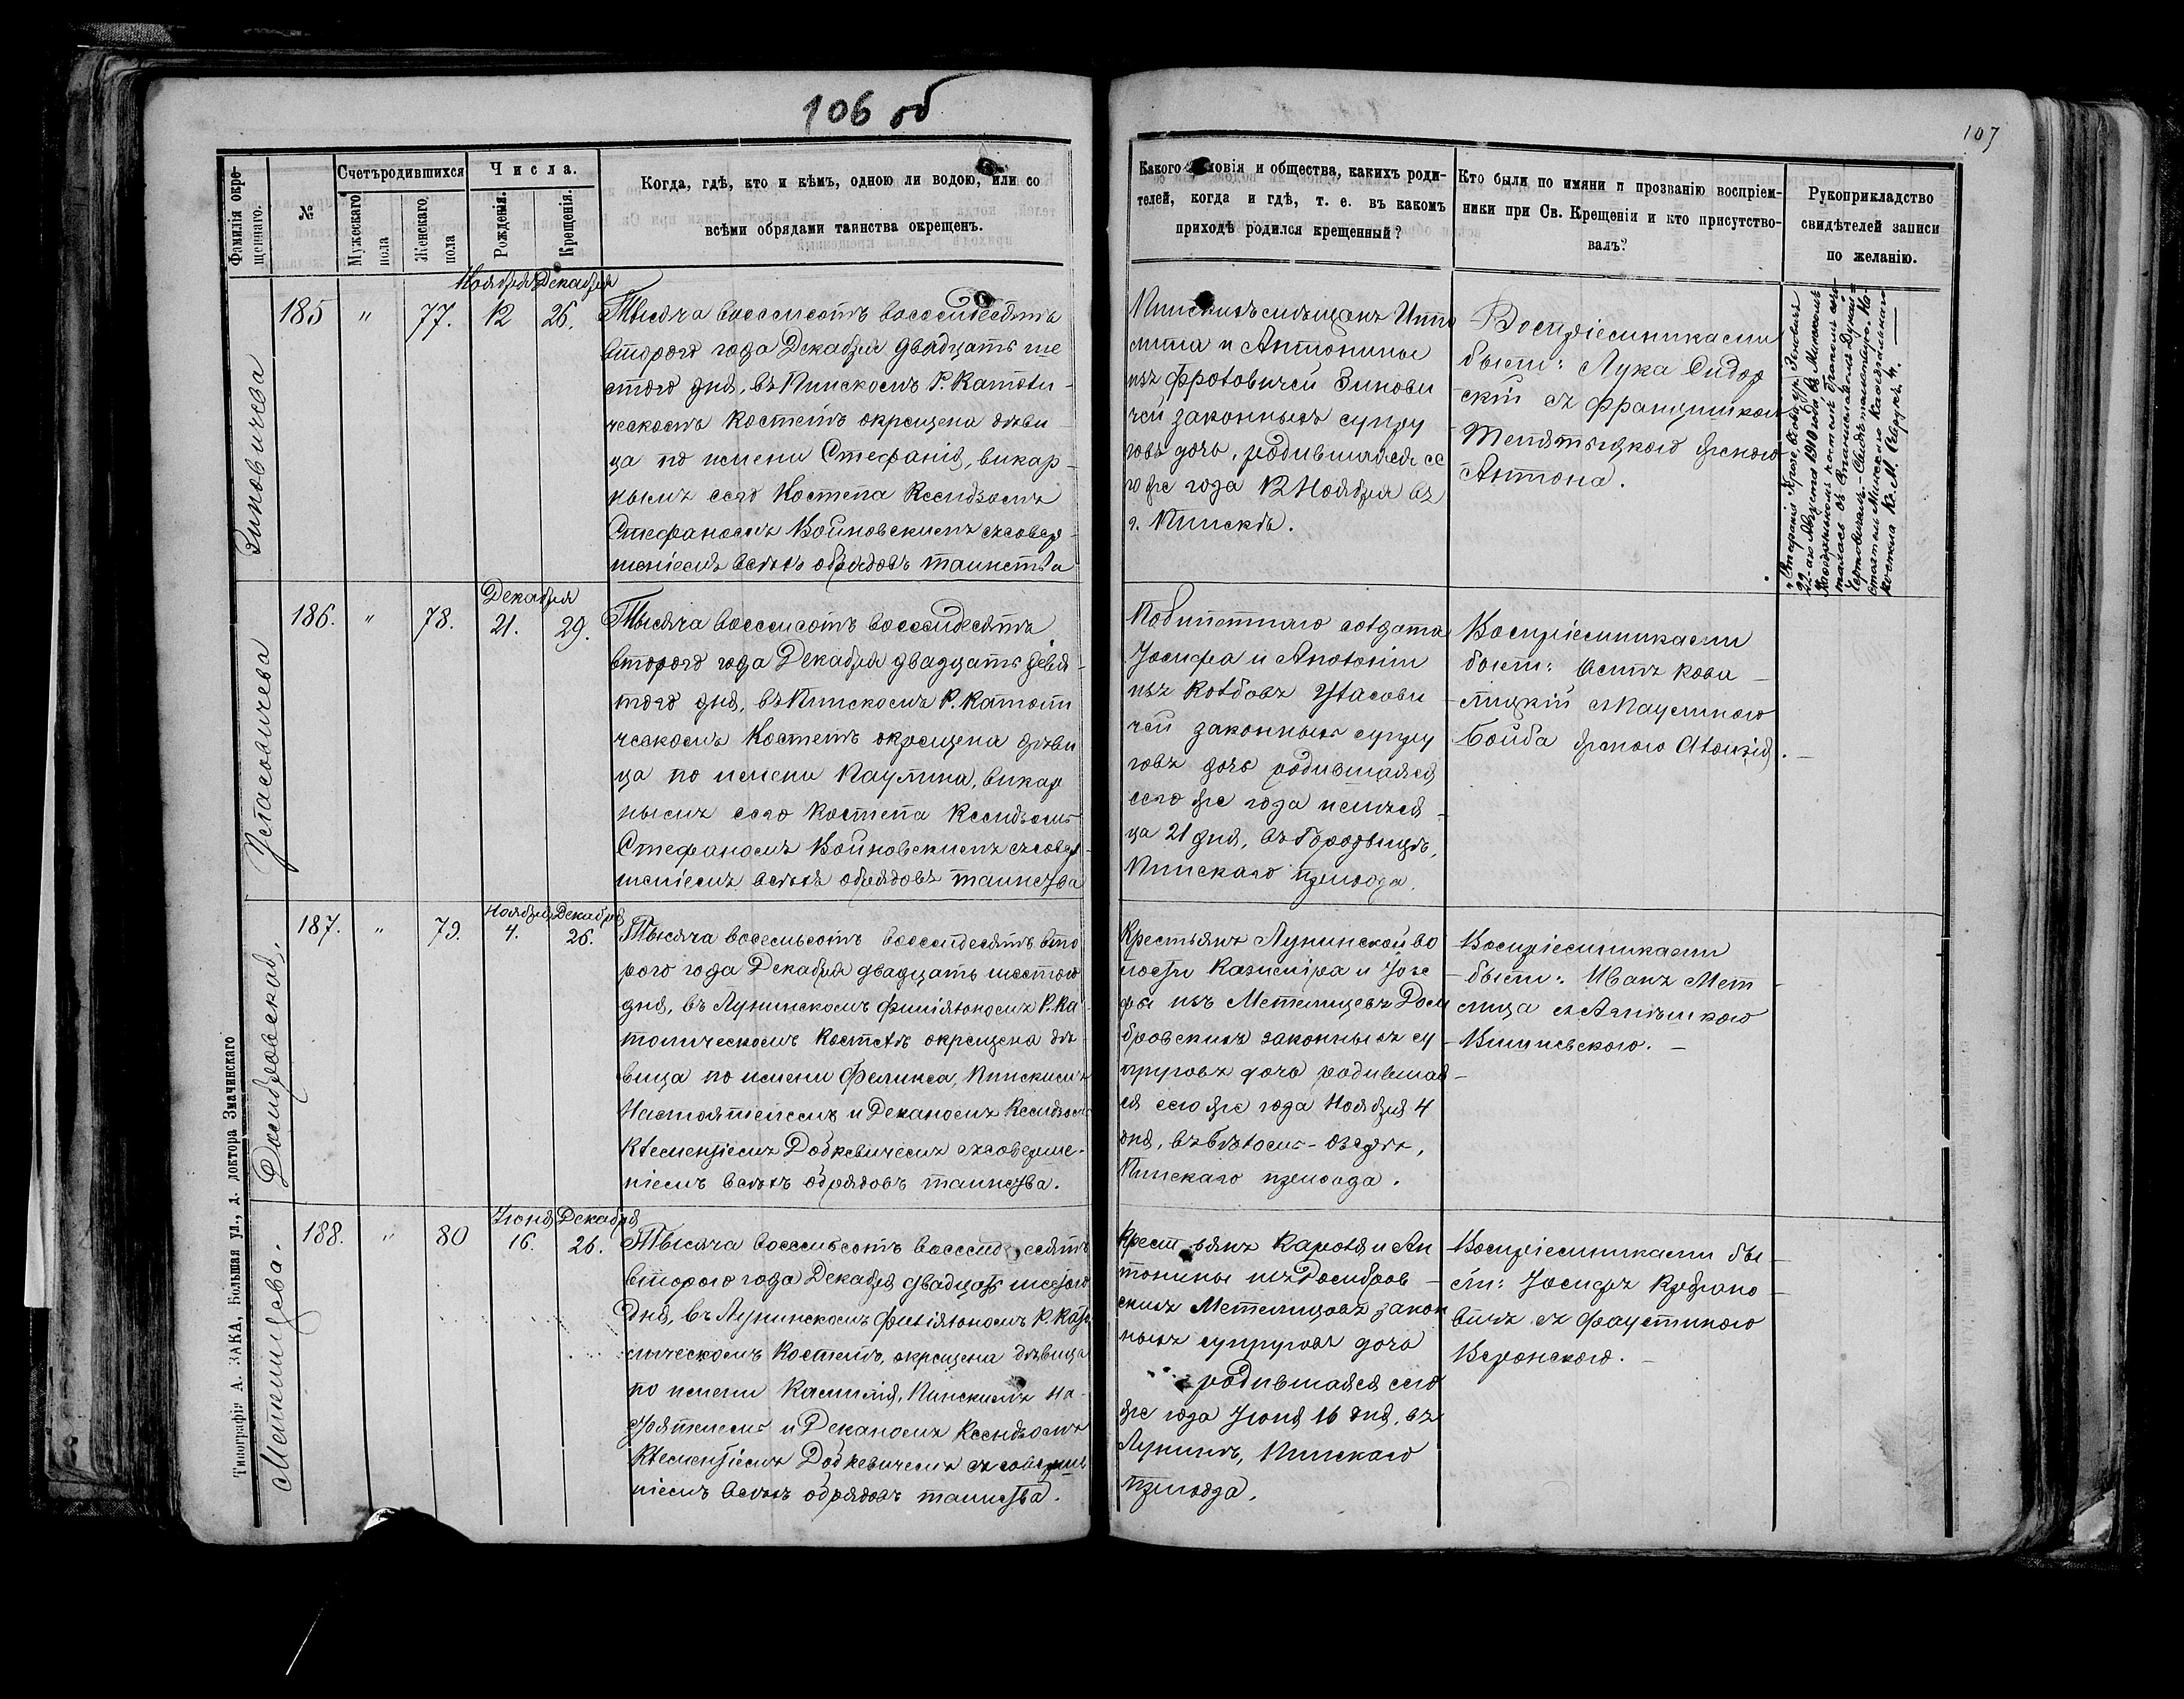 106 об
107
Фамилія окре-
щеннаго.
№
Счетъ родившихся
Мужескаго
пола
Женскаго
пола
Числа.
Рожденія.
Крещенія.
Когда, гдѣ, кто и кѣмъ, одною ли водою, или со
всѣми обрядами таинства окрещенъ.
Какого условія и общества, какихъ роди-
телей, когда и гдѣ, т. е. въ какомъ
приходѣ родился крещенный?
Кто были по имяни и прозванію воспріем-
ники при Св. Крещеніи и кто присутство-
валъ?
Рукоприкладство
свидѣтелей записи
по желанію.
Зиновичева
185 " 77.
Ноября Декабря
12 26.
Тысяча восемсотъ восемдесятъ
второго года Декабря двадцать ше
стого дня, въ Пинскомъ Р. Католи-
ческомъ Костелѣ окрещена дѣви
ца по имени Стефанія, викар-
нымъ сего Костела Ксендзомъ
Стефаномъ Войновскимъ съ совер-
шеніемъ всѣхъ обрядовъ таинства
Пинскихъ мѣщанъ Иппо
лита и Антонины
изъ Фроловичей Зинови
чей законныхъ супру
говъ дочь, родившаяся се
го же года 12 Ноября въ
г. Пинскѣ.
Воспріемниками
были: Лука Сидор
скій съ Францишкою
женою
Антона.
22-го Августа 1910 года въ Минскомъ
Кафедральномъ костелѣ бракомъ соче-
талась съ Станиславомъ
Минскаго Кафедральнаго
костела Кс. М.
Устасовичева
186. " 78.
Декабря
21. 29.
Тысяча восемсотъ восемдесятъ
второго года Декабря двадцать девя-
того дня, въ Пинскомъ Р. Католи
ческомъ Костелѣ окрещена дѣви
ца по имени Паулина, викар
нымъ сего Костела Ксендзомъ
Стефаномъ Войновскимъ съ совер-
шеніемъ всѣхъ обрядовъ таинства
солдата
Іосифа и Аполоніи
изъ
чей законныхъ супру
говъ дочь родившаяся
сего же года и мѣся-
ца 21 дня, въ Городищѣ,
Пинскаго прихода.
Воспріемниками
были:
съ Паулиною
Бойба женою Алоизія.
Домбровская,
187. " 79.
Ноября Декабря
4. 26.
Тысяча восемьсотъ восемдесятъ вто
рого года Декабря двадцать шестого
дня, въ Лунинскомъ филіяльномъ Р. Ка-
толическомъ Костелѣ окрещена дѣ-
вица по имени Феликса, Пинскимъ
Настоятелемъ и Деканомъ Ксендзомъ
Клементіемъ Додкевичемъ съ соверше-
ніемъ всѣхъ обрядовъ таинства.
Крестьянъ Лунинской во
лости Казиміра и Юзе
фы изъ Метелицевъ Дом
бровскихъ законныхъ су-
пруговъ дочь родившая-
ся сего же года Ноября 4
дня, въ Бѣломъ-озерѣ,
Пинскаго прихода.
Воспріемниками
были: Иванъ Мете-
лица съ
Метелицева.
188. " 80
Іюня Декабря
16. 26.
Тысяча восемьсотъ восемдесятъ
второго года Декабря двадцать шестого
дня, въ Лунинскомъ филіяльномъ Р. Като
лическомъ Костелѣ, окрещена дѣвица
по имени Камилія, Пинскимъ На-
стоятелемъ и Деканомъ Ксендзомъ
Клементіемъ Додкевичемъ съ соверше
ніемъ всѣхъ обрядовъ таинства.
Крестьянъ Кароля и Ан
тонины изъ Домбров-
скихъ Метелицовъ закон
ныхъ супруговъ дочь
родившаяся сего
же года Іюня 16 дня, въ
Лунинѣ, Пинскаго
прихода.
Воспріемниками бы-
ли: Іосифъ
съ Фаустиною
Типографія А. ЗАКА, Большая ул., д. доктора Значинскаго